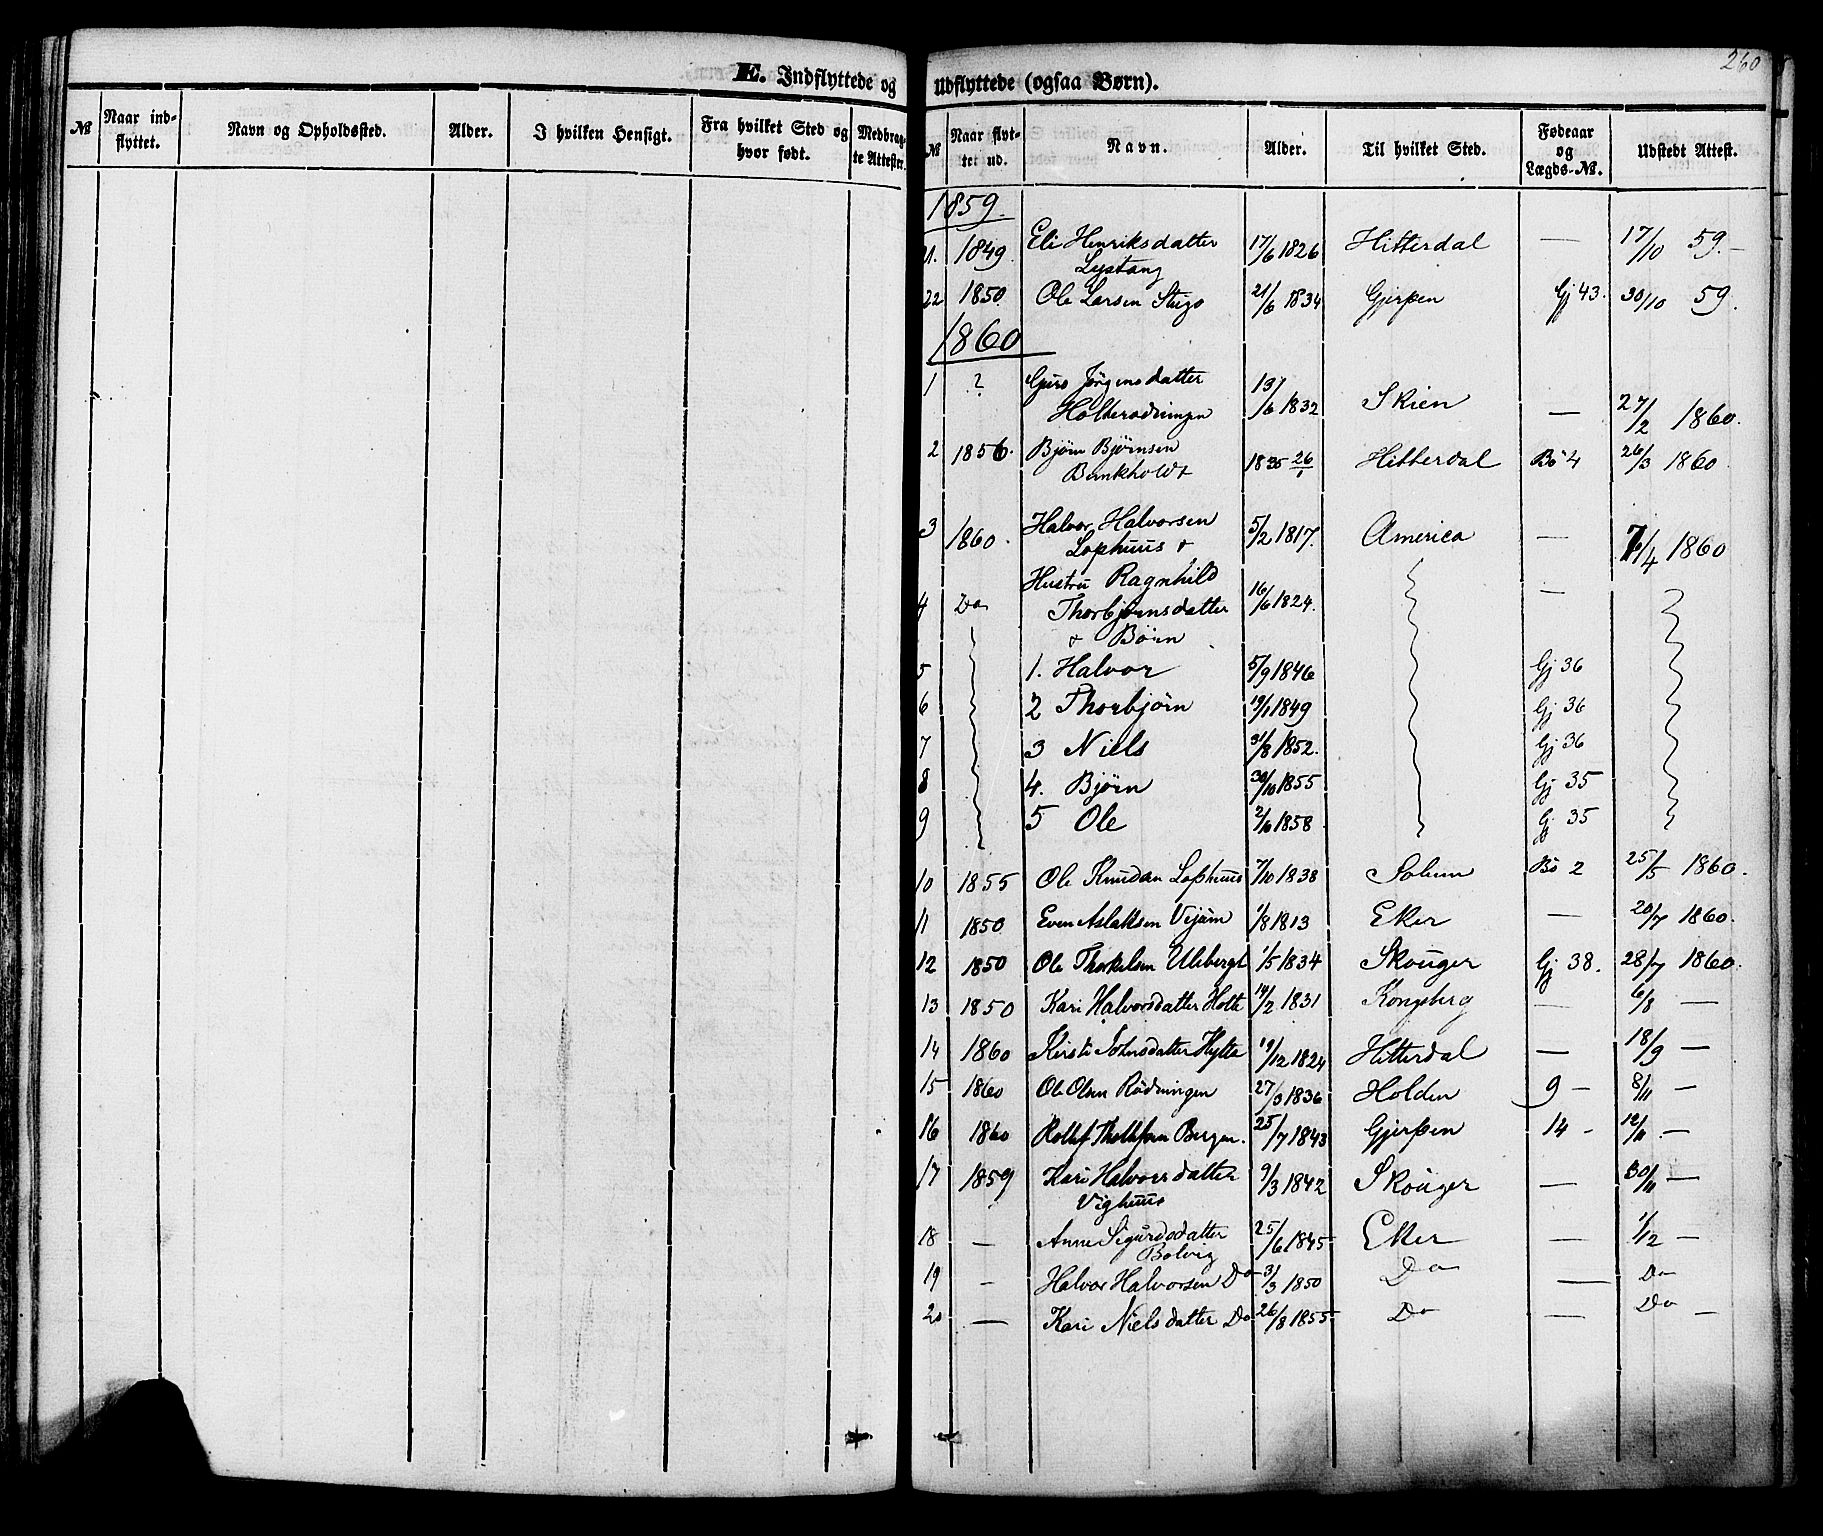 260
E. Indflyttede og
№ Naar ind-flyttet. Navn og Opholdssted. Alder. I hvilken Hensigt. Fra hvilket Sted og hvor født. Medbrag-te Attester.
Udflyttede (ogsaa Børn).
№ Naar flyt-tet ud. Navn. Alder. Til hvilket Sted. Fødeaar og Lægds-№. Udstedt Attest.
1859.
21. 1849. Eli Henriksdatter 17/6 1826 Hitterdal — 17/10 59. –
Lystang
22 1850. Ole Larsen Stugo 21/6 1834 Gjerpen Gj 43. 30/10 59.
1860
1 ? Guro Jörgensdatter 13/6 1832 Skien — 27/2 1860.
2 1856. Bjørn Bjørnsen 1835 26/1 Hitterdal Bö 4 26/3 1860
Bunkholdt
3 1860. Halvor Halvorsen 5/2 1817. America — 7/4 1860
Lophuus &
Hustru Ragnhild
4 Do Thorbjørnsdatter 16/6 1824. —
& Börn
5 1. Halvor 5/9 1846 Gj 36
6 2 Thorbjörn 19/1 1849 Gj 36
7 3 Niels 31/8 1852. Gj 36
8 4. Björn 30/10 1855 Gj 35
9 5 Ole 2/10 1858 Gj 35
10 1855 Ole Knudsen Lophuus 7/10 1838 Solum Bö 2 25/5 1860.
11 1850 Even Aslaksen 1/8 1813 Eker — 20/7 1860.
12 1850 Ole Thorkelsen Ulebergh 1/5 1834 Skouger Gj 38. 28/7 1860.
13 1850 Kari Halvorsdatter Holte 14/2 1831 Kongsberg — 6/8 —
14 1860 Kirsti Johnsdatter Hylta 19/12 1824 Hitterdal — 18/9 —
15 1860 Ole Olsen Rödningen 27/3 1836 Holden 9 – 8/11 –
16 1860 Rollef Thollefsen Bergen. 25/7 1843 Gjerpen 14 – 12/11 . –
17 1859 Kari Halvorsdatter 9/3 1842 Skouger — 30/11 —
Vighuus
18 — Anne Sigurdsdatter 25/6 1845 Eker — 1/12 –
Bolvig
19 – Halvor Halvorsen Do 31/3 1850 Do — Do
20 — Kari Nielsdatter Do 26/8 1855 Do — Do –